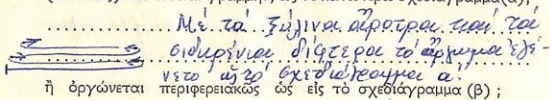 Μέ τά ξύλινα άροτρα καί τά
σιδερένια δίφτερα τό όργωμα ἐγέ-
νετο ὡς τό σχεδιάγραμμα α'.
ἤ ὀργώνεται περιφερειακῶς ὡς εἰς τό σχεδιάγραμμα (β) ;